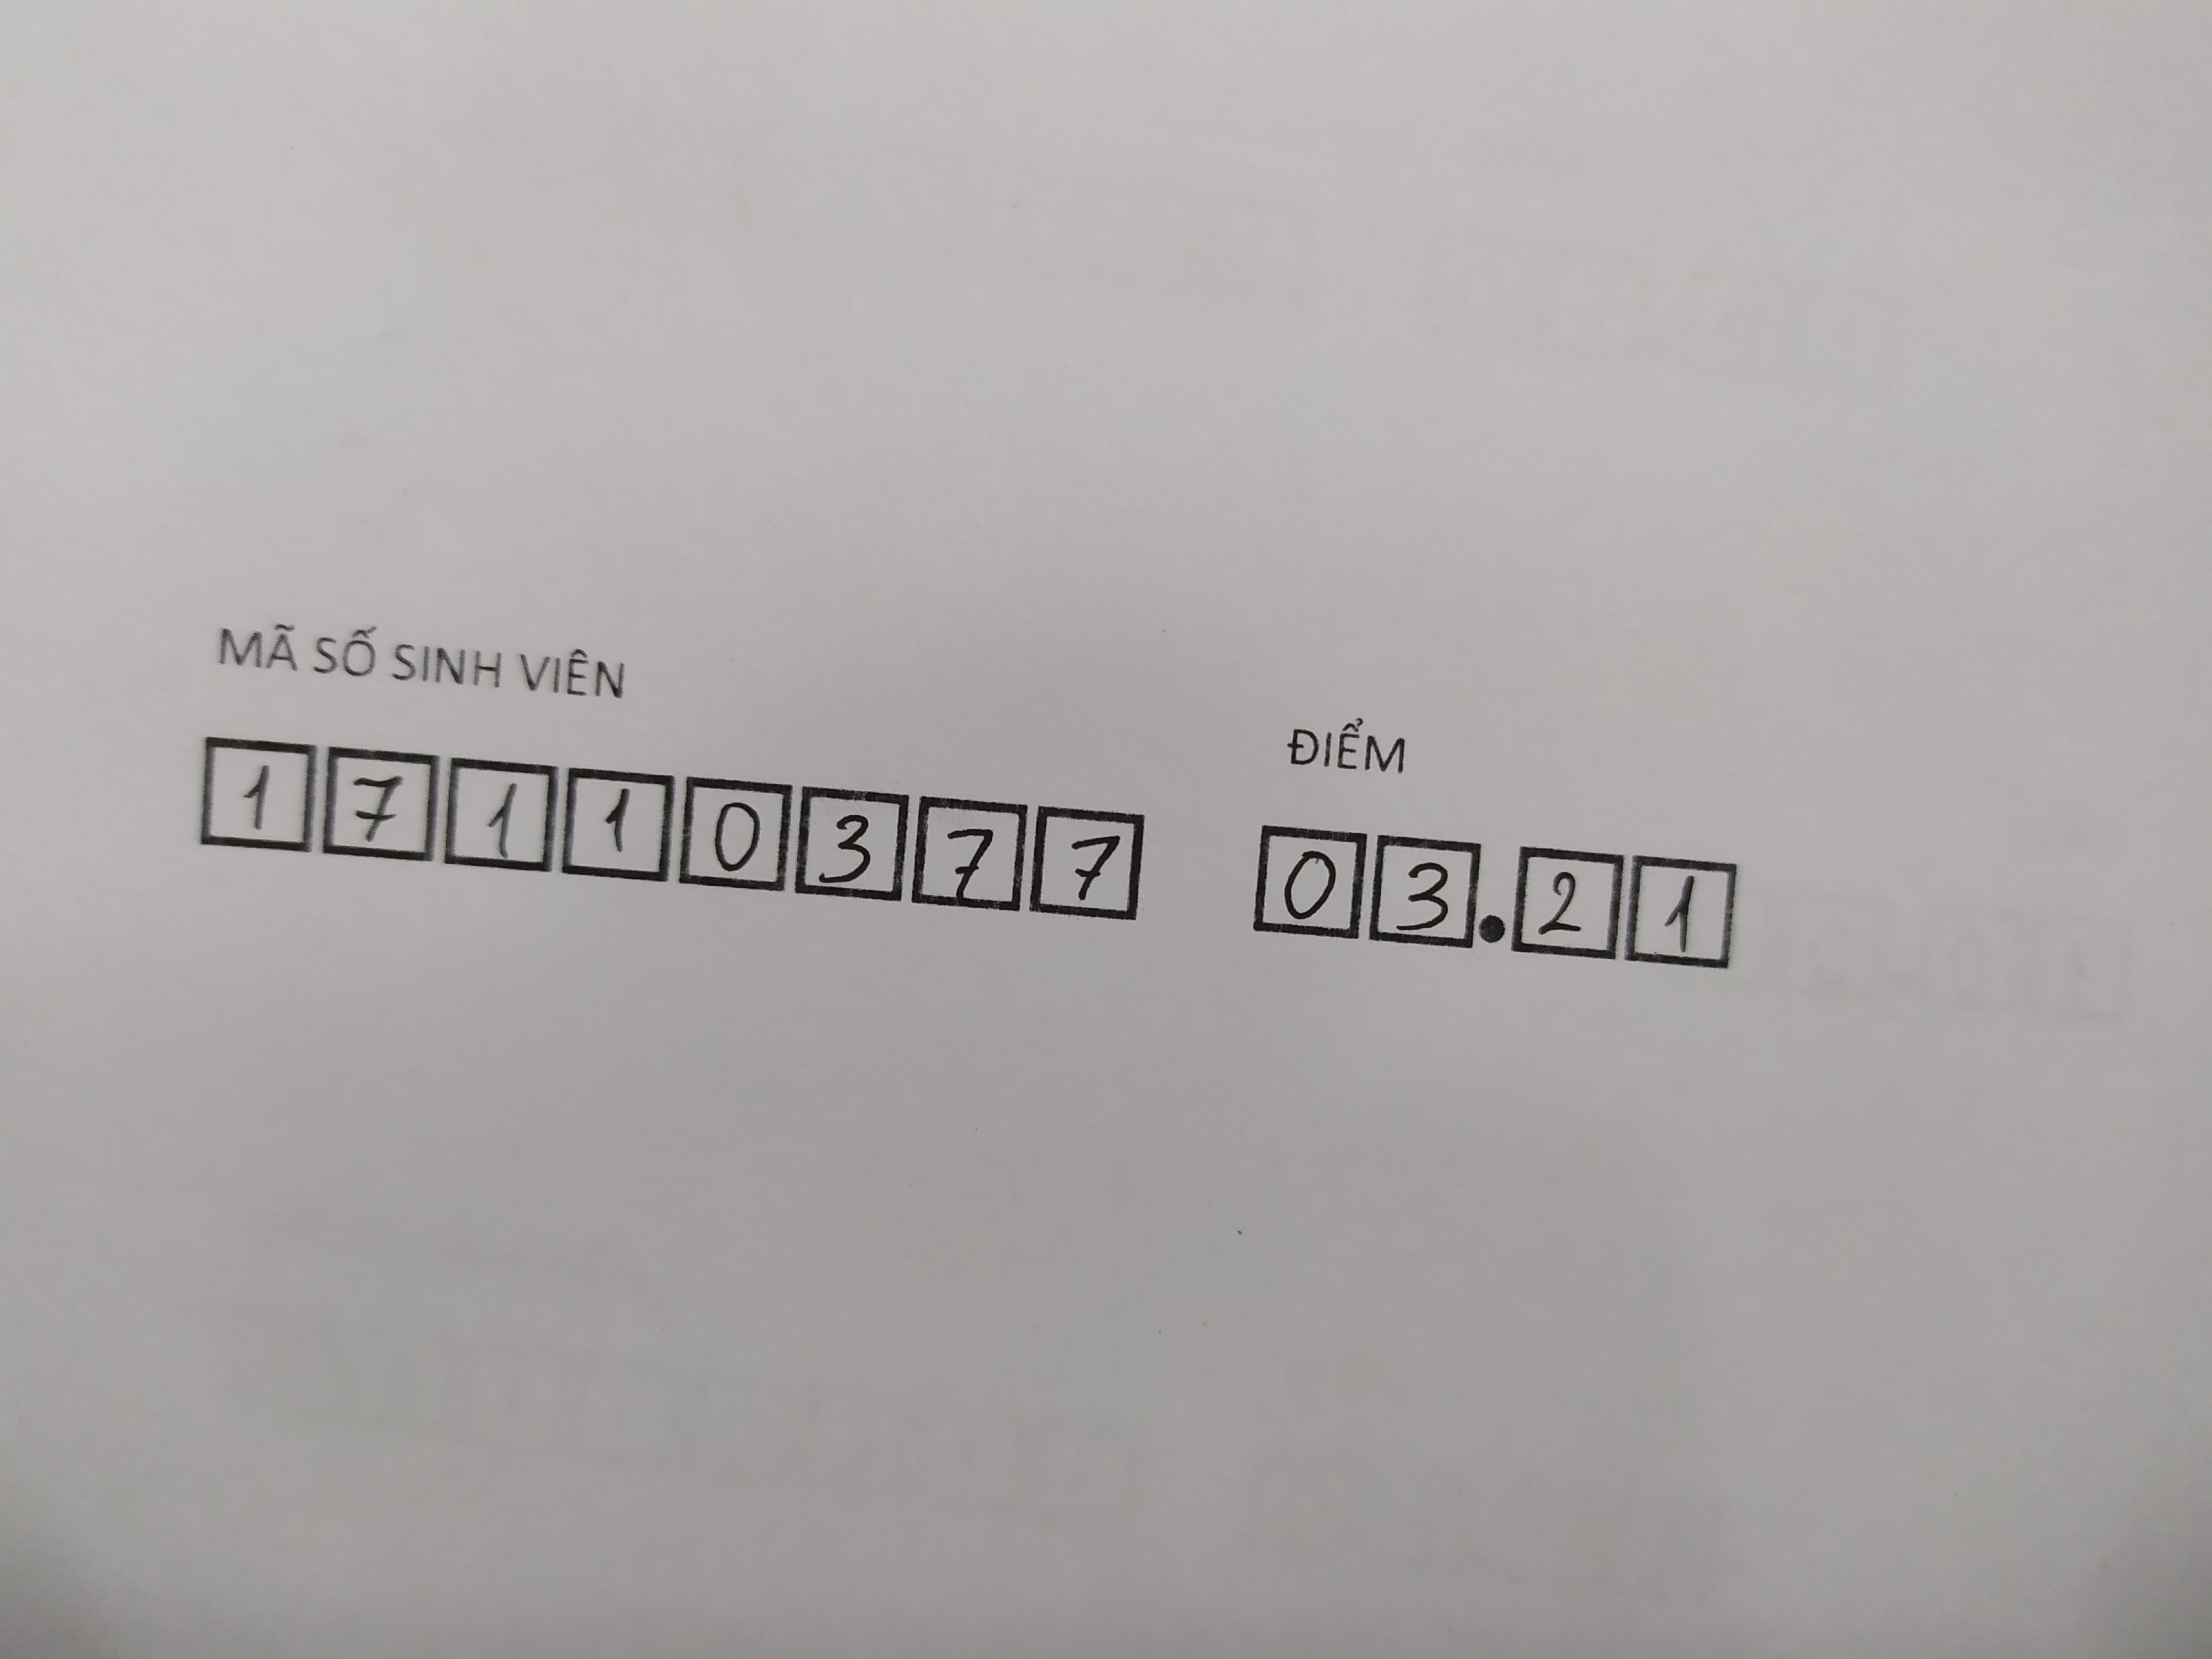 MÃ SỐ SINH VIÊN
17110377
ĐIỂM
03.21